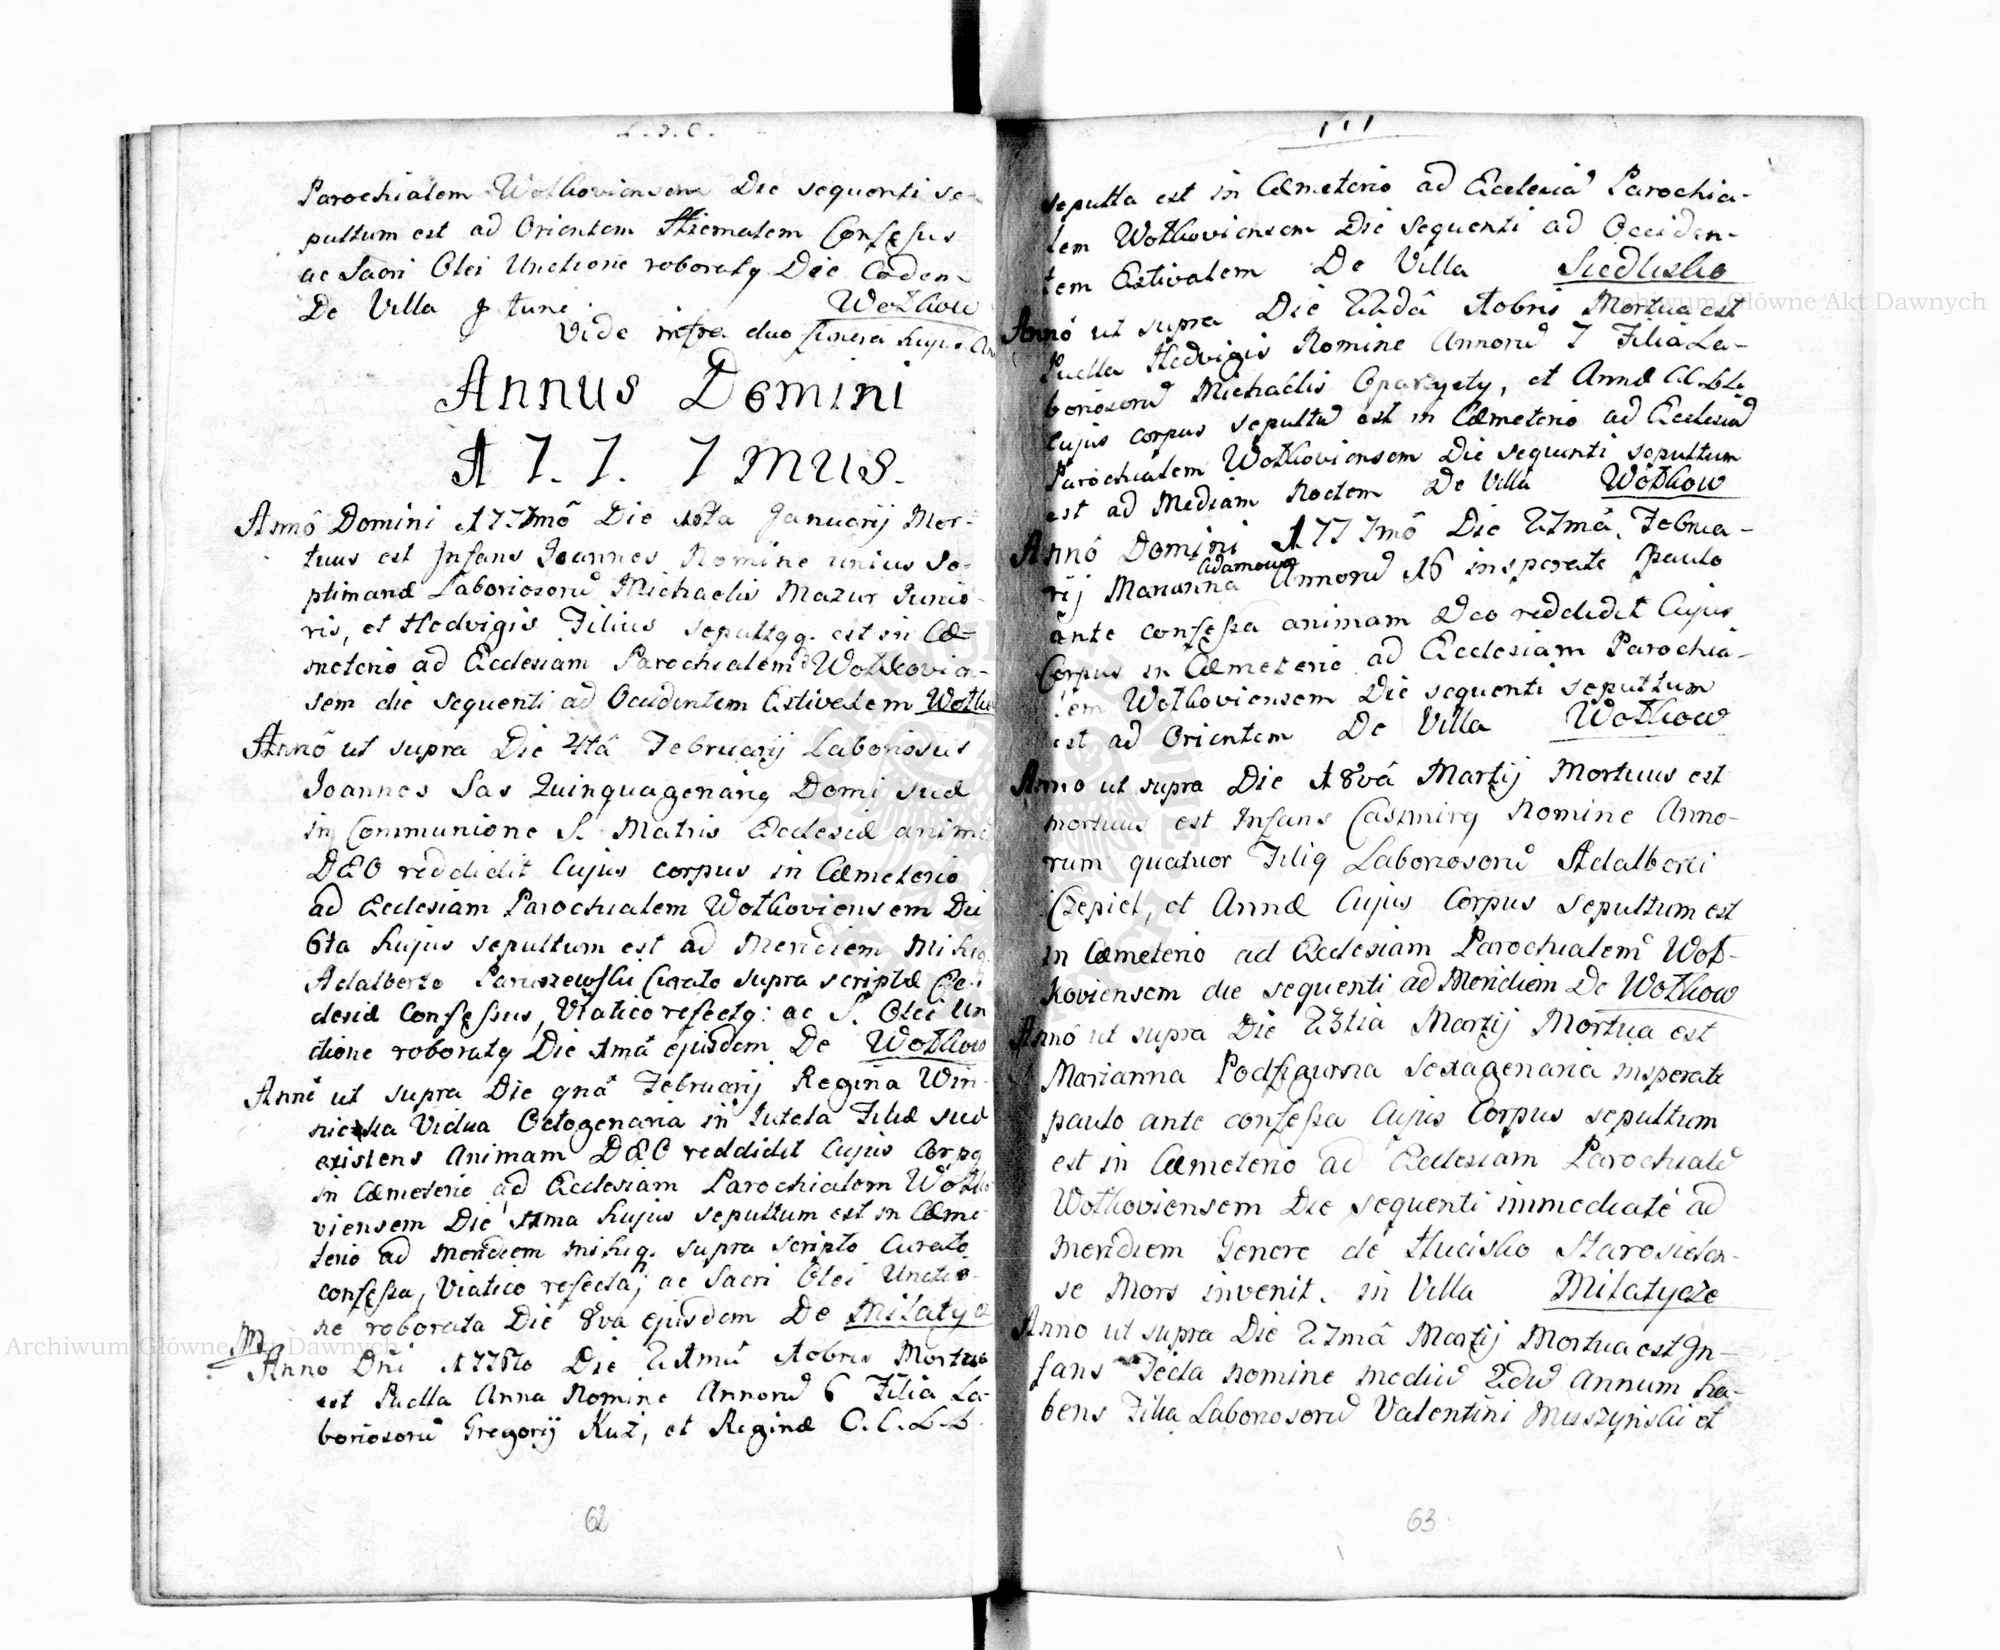 L. J. C.
Parochialem Wołkoviensem Die sequenti se-
pultum est ad Orientem Hiematem Confessus
ac Sacri Olei Unctione roboratq Die Eadem
De Villa Wołkow
Vide infra duo funera hujus
Annus Domini
1 7. 7. 7 mus.
Annô Domini 1777mô Die 10ta Januarij Mor-
tuus est Infans Joannes Nomine unius Se-
ptimanæ Laboriosorũ Michaelis Mazur Junio-
ris, et Hedvigis Filius sepultqq. est in Cæ-
meterio ad Ecclesiam Parochialem Wołkovien-
sem die sequenti ad Occidentem Estivalem Wołko
Annô ut supra Die 4tâ Februarij Laboriosus
Joannes Sas Quinquagenariq Domi suæ
in Communione S. Matris Ecclesiæ anima
DEO reddidit Cujus corpus in Cæmeterio
ad Ecclesiam Parochialem Wołkoviensem Die
6ta hujus sepultum est ad Meridiem Mihiq
Adalberto Paruszewski Curato supra scriptæ Ec-
clesiæ Confessus, Viatico refectq: ac S. Olei Un
ctione roboratq Die 1mâ ejusdem De Wołkow
Annô ut supra Die 9nâ Februarij Regina Win-
nicka Vidua Octogenaria in Tutela Filiæ suæ
existens Animam DEO reddidit Cujus Corpq
in Cæmeterio ad Ecclesiam Parochialem Wołko
viensem Die 11ma hujus sepultum est in Cæme-
terio ad meridiem mihiq. supra scripto Curato
confessa, Viatico refecta; ac Sacri Olei Unctio-
ne roborata Die 8va ejusdem De Miłatycz
M
Anno Dñi 1776to Die 21mâ Xobris Mortua
est Puella Anna Nomine Annorũ 6 Filia La-
boriosorũ Gregorij Kuź, et Reginæ C. C. L. L.
62
111
sepulta est in Cæmeterio ad Ecclesiã Parochia-
lem Wołkoviensem Die Sequenti ad Occiden-
tem Estivalem De Villa Siedlisko
Annô ut supra Die 22dâ Xobris Mortua est
Puella Hedvigis Nomine Annorũ 7 Filia La-
boriosorũ Michaelis Oparzęty, et Annæ CC. LL.
Cujus corpus sepultũ est in Cæmeterio ad Ecclesiã
Parochialem Wołkoviensem Die sequenti sepultum
est ad Mediam Noctem De Villa Wołkow
Annô Domini 1777mô Die 27mâ Februa-
rij Marianna Adamowa Annorũ 16 insperate paulo
ante confessa animam Deo reddidit Cujus
Corpus in Cæmeterio ad Ecclesiam Parochia-
lem Wołkoviensem Die sequenti sepultum
est ad Orientem De Villa Wołkow
Anno ut supra Die 18vâ Martij Mortuus est
mortuus est Infans Casimirq Nomine Anno-
rum quatuor Filiq Laboriosorũ Adalberti
Czepiel, et Annæ Cujus Corpus sepultum est
in Cæmeterio ad Ecclesiam Parochialem Woł-
koviensem die sequenti ad Meridiem De Wołkow
Annô ut supra Die 23tia Martij Mortua est
Marianna Podfigurna Sexagenaria insperate
paulo ante confessa Cujus Corpus sepultum
est in Cæmeterio ad Ecclesiam Parochialẽ
Wołkoviensem Die sequenti immediaté ad
meridiem Genere dé Hucisko Starosielen-
se Mors invenit. in Villa Miłatycze
Anno ut supra Die 27mâ Martij Mortua est In-
fans Tecla nomine mediũ 2dũ Annum ha-
bens Filia Laboriosorũ Valentini Muszyński et
63
Archiwum Główne Akt Dawnych
Archiwum Główne Akt Dawnych